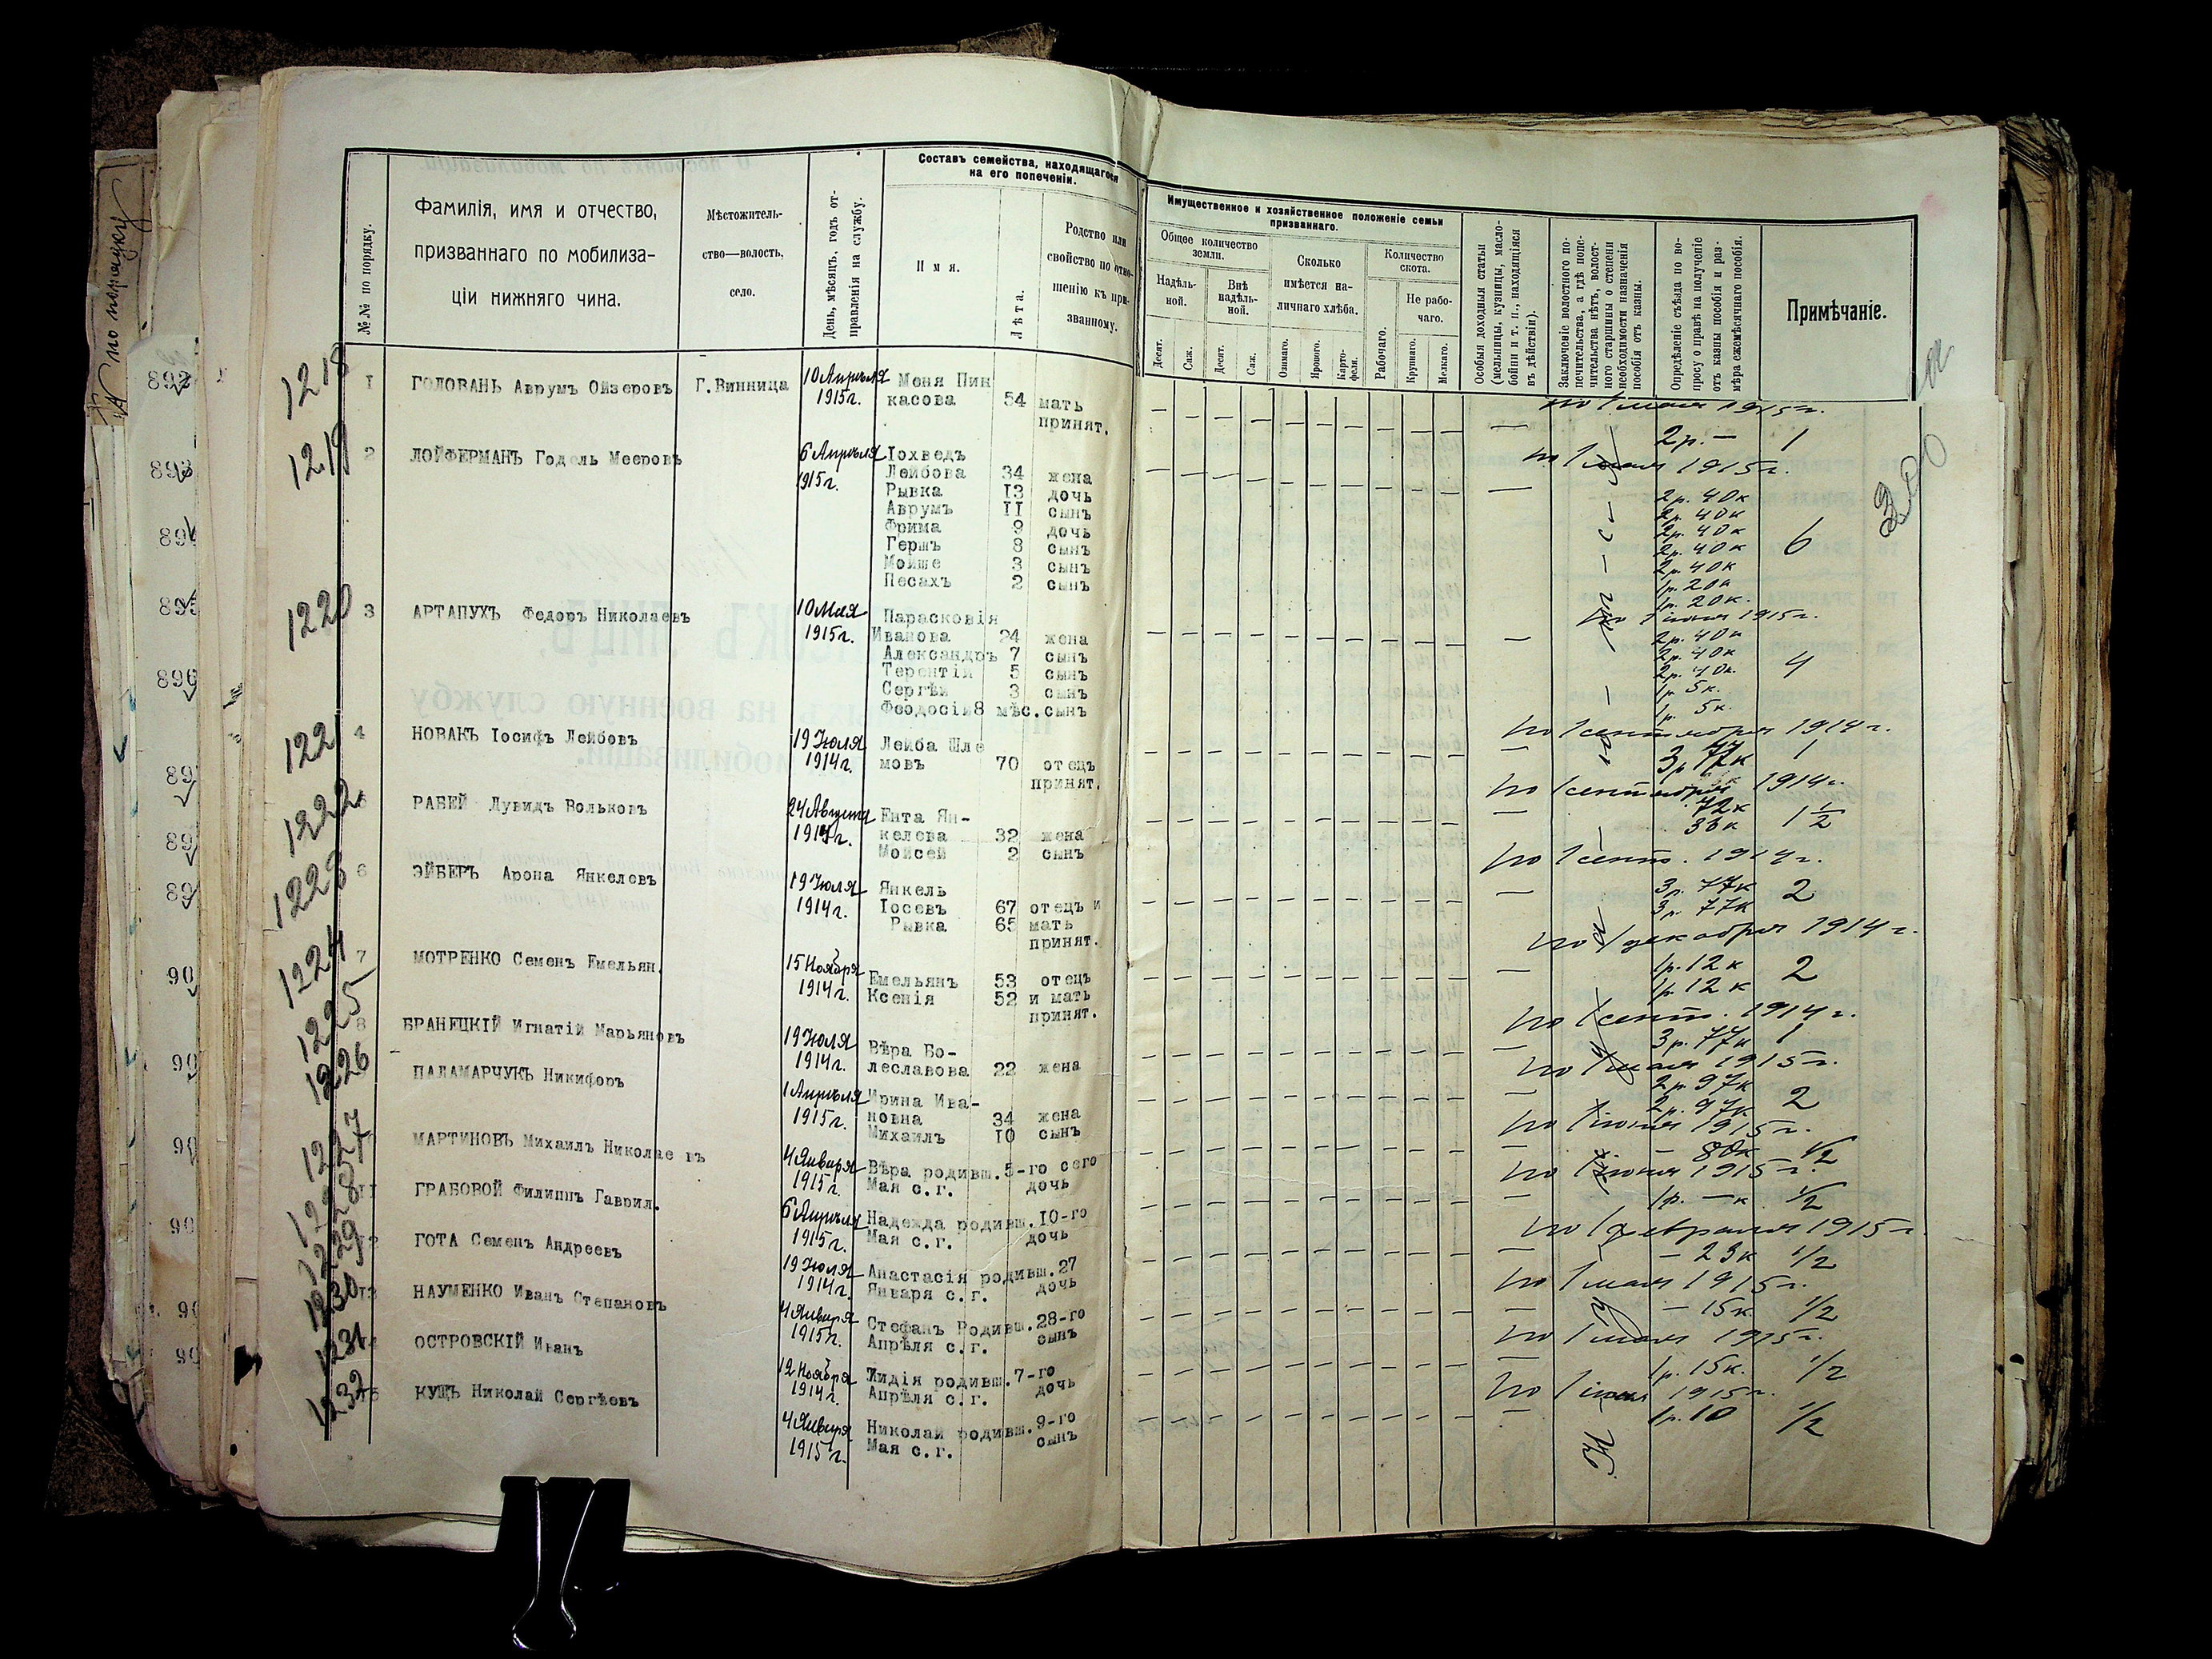 № по порядку
Фамилія, имя и отчество,
призваннаго по мобилиза-
ціи нижняго чина.
№№ по порядку.
Мѣстожитель-
ство—волость,
село.
День, мѣсяцъ, годъ от-
правленія на службу.
Составъ семейства, находящагося
на его попеченіи.
Имя.
Лѣта.
Родство или
свойство по отно-
шенію къ при-
званному.
Имущественное и хозяйственное положеніе семьи
призваннаго.
Общее количество
земли.
Надѣль-
ной.
Внѣ
надѣль-
ной.
Десят.
Саж.
Десят.
Саж.
Сколько
имѣется на-
личнаго хлѣба.
Озимаго.
Ярового.
Карто-
феля.
Количество
скота.
Рабочаго.
Не рабо-
чаго.
Крупнаго.
Мелкаго.
Особыя доходныя статьи
(мельницы, кузницы, масло-
бойни и т. п., находящіяся
въ дѣйствіи).
Заключеніе волостного по-
печительства, а гдѣ попе-
чительства нѣтъ, волост-
ного старшины о степени
необходимости назначенія
пособія отъ казны.
Опредѣленіе съѣзда по во-
просу о правѣ на полученіе
отъ казны пособія и раз-
мѣра ежемѣсячнаго пособія.
Примѣчаніе.
1218 1 ГОЛОВАНЬ Аврумъ Ойзеровъ Г.Винница 10 Апрѣля Меня Пин
1915г. касова 54 мать
принят.
по 1 мая 1915г.
2р. — 1
1219 2 ЛОЙФЕРМАНЪ Годель Мееровъ 6 Апрѣля Іохведъ
1915г. Лейбова 34 жена
Рывка 13 дочь
Аврумъ 11 сынъ
Фрима 9 дочь
Гершъ 8 сынъ
Мойше 3 сынъ
Песахъ 2 сынъ
по 1 мая 1915г.
2р. 40к
2р. 40к
2р. 40к
2р. 40к 6
2р. 40к
1р. 20к
1р. 20к.
1220 3 АРТАПУХЪ Федоръ Николаевъ 10 Мая Парасковія
1915г. Иванова 24 жена
Александръ 7 сынъ
Терентій 5 сынъ
Сергѣй 3 сынъ
Феодосій 8 мѣс. сынъ
по 1 іюня 1915г.
2р. 40к
2р. 40к
2р. 40к. 4
1р. 5к.
1р. 5к.
1221 4 НОВАКЪ Іосифъ Лейбовъ 19 Іюля Лейба Шле
1914г. мовъ 70 отецъ
принят.
по 1 сентября 1914г.
3р 77к 1
1222 5 РАБЕЙ Дувидъ Вольковъ 24 Августа Ента Ян-
1914г. келева 32 жена
Мойсей 2 сынъ
по 1 сентября 1914г.
72к
36к 1½
1223 6 ЭЙБЕРЪ Арона Янкелевъ 19 Іюля Янкель
1914г. Іосевъ 67 отецъ и
Рывка 65 мать
принят.
по 1 сент. 1914г.
3р. 77к 2
3р. 77к
1224 7 МОТРЕНКО Семенъ Емельян. 15 Ноября Емельянъ 53 отецъ
1914г. Ксенія 52 и мать
принят.
по 1 декабря 1914г.
1р. 12к 2
1р. 12к
1225 8 БРАНЕЦКІЙ Игнатій Марьяновъ 19 Іюля Вѣра Бо-
1914г. леславова 22 жена
по 1 сент. 1914г.
3р. 77к 1
1226 ПАЛАМАРЧУКЪ Никифоръ 1 Апрѣля Ирина Ива-
1915г. новна 34 жена
Михаилъ 10 сынъ
по 1 мая 1915г.
2р 97к 2
2р. 97к
1227 МАРТИНОВЪ Михаилъ Николаевъ 4 Января Вѣра родивш. 5-го сего
1915г. Мая с.г. дочь
по 1 іюня 1915г.
— 80к ½
1228 11 ГРАБОВОЙ Филиппъ Гаврил. 6 Апрѣля Надежда родивш. 10-го
1915г. Мая с.г. дочь
по 1 іюня 1915г.
1р. — к ½
1229 12 ГОТА Семенъ Андреевъ 19 Іюля Анастасія родивш. 27
1914г. Января с.г. дочь
по 1 февраля 1915г.
— 23к ½
1230 13 НАУМЕНКО Иванъ Степановъ 4 Января Стефанъ Родивш. 28-го
1915г. Апрѣля с.г. сынъ
по 1 мая 1915г.
— 15к. ½
1231 14 ОСТРОВСКІЙ Иванъ 12 Ноября Лидія родивш. 7-го
1914г. Апрѣля с.г. дочь
по 1 мая 1915г.
1р. 15к. ½
1232 15 КУЩЪ Николай Сергѣевъ 4 Января Николай родивш. 9-го
1915г. Мая с.г. сынъ
по 1 іюня 1915г.
1р. 10 ½
892
893
894
895
896